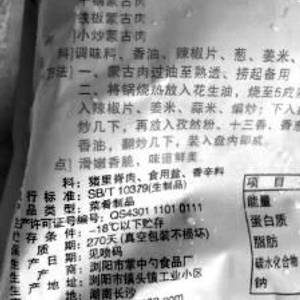 干锅蒙古肉
铁板蒙古肉
小炒蒙古肉
料]调味料、香油、辣椒片、葱、姜米、
方法]一、蒙古肉过油至熟透、捞起备用
二、将锅烧热放入花生油，烧至5成
入辣椒片、姜米、蒜米、编炒；下入
炒几下，再放入孜然粉、十三香、香
香油，翻炒几下，装入盘内即成.
点]滑嫩香脆，味道鲜美
料：猪里脊肉、食用盐、香辛料
行标准：SB/T 10379(生制品)
品类型：菜肴制品
产许可证号编号：QS4301 1101 0111
存条件：-18℃以下贮存
质期：270天(真空包装不损坏)
产日期：见喷码
产商：浏阳市掌中勺食品厂
地：浏阳市镇头镇工业小区
产地：湖南长沙
项目
能量
蛋白质
脂肪
碳水化合物
钠